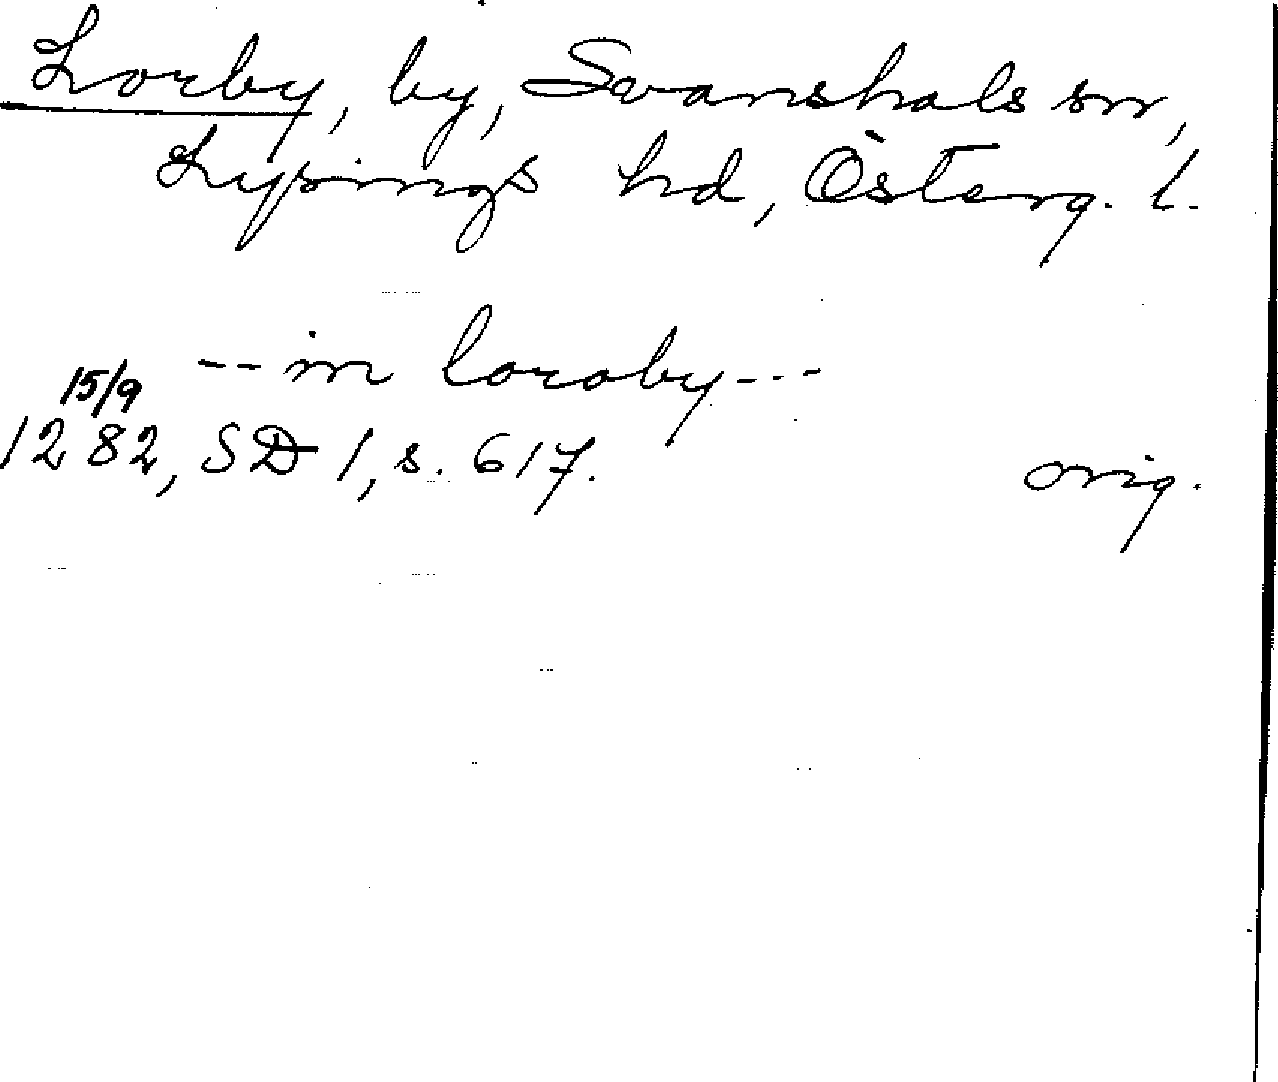 Lorby, by, Svanshals sn,
Lysings hd, Österg. l.
-- in loroby ---
15/9
1282, SD 1, s. 617. orig.